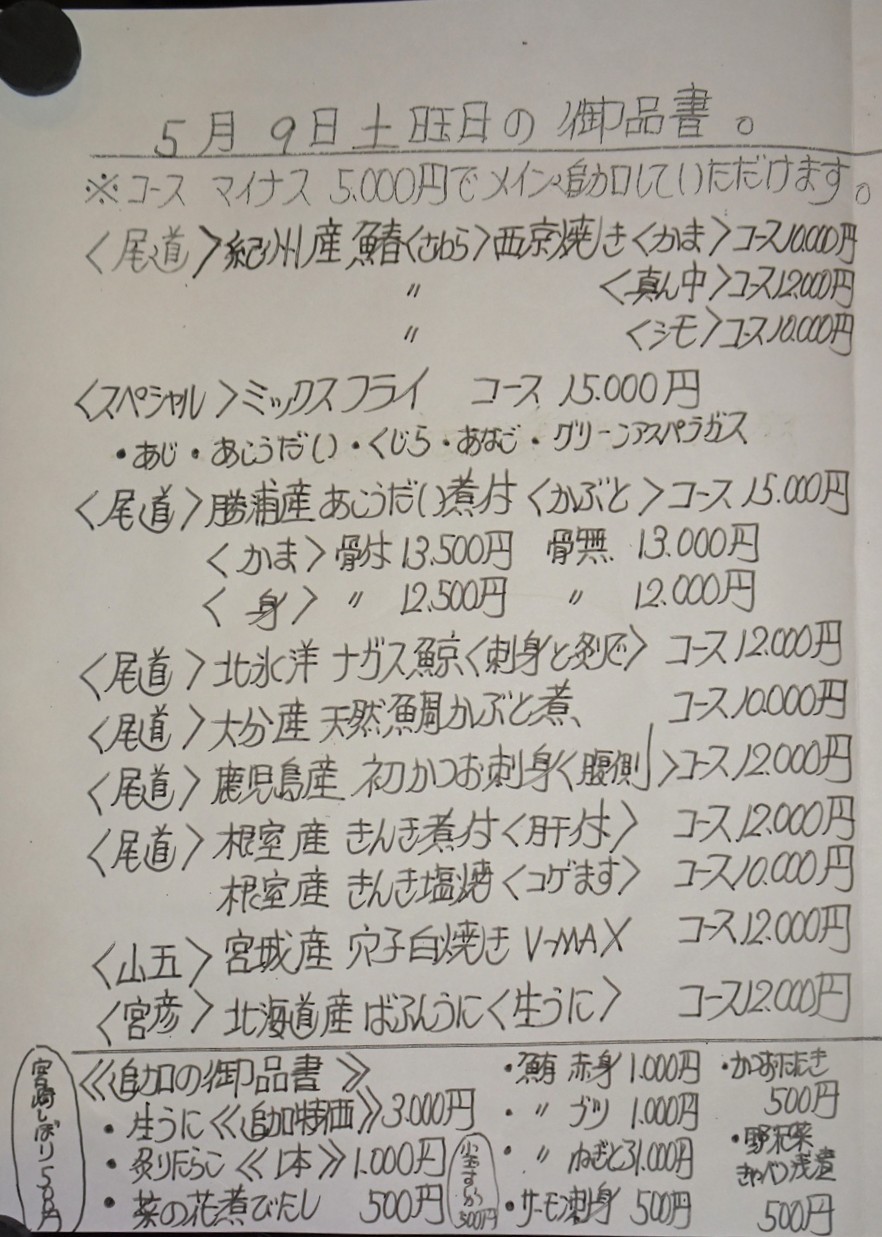 5月9日土曜日の御品書。
※コース マイナス 5.000円でメイン追加していただけます。
〈尾道〉紀州産 鰆〈さわら〉西京焼き〈かま〉コース10.000円
〃 〈真ん中〉コース12.000円
〃 〈シモ〉コース10.000円
〈スペシャル〉ミックスフライ コース 15.000円
・あじ・あこうだい・くじら・あなご・グリーンアスパラガス
〈尾道〉勝浦産 あこうだい煮付〈かぶと〉コース 15.000円
〈かま〉骨付 13.500円 骨無 13.000円
〈身〉 〃 12.500円 〃 12.000円
〈尾道〉北氷洋 ナガス鯨〈刺身と炙りで〉コース12.000円
〈尾道〉大分産 天然鯛かぶと煮、 コース10.000円
〈尾道〉鹿児島産 初かつお刺身〈腹側〉コース12.000円
〈尾道〉根室産 きんき煮付〈肝付〉 コース12.000円
根室産 きんき塩焼〈コゲます〉 コース10.000円
〈山五〉宮城産 穴子白焼き V-MAX コース12.000円
〈宮彦〉北海道産 ばふんうに〈生うに〉 コース12.000円
《追加の御品書》
・生うに《追加特価》3.000円
・炙りたらこ《1本》1.000円
・菜の花煮びたし 500円
・鮪 赤身 1.000円
・〃 ブツ 1.000円
・〃 ねぎとろ1.000円
・サーモン刺身 500円
・かつおたたき
500円
・野沢菜
キャベツ浅漬
500円
宮崎しぼり500円